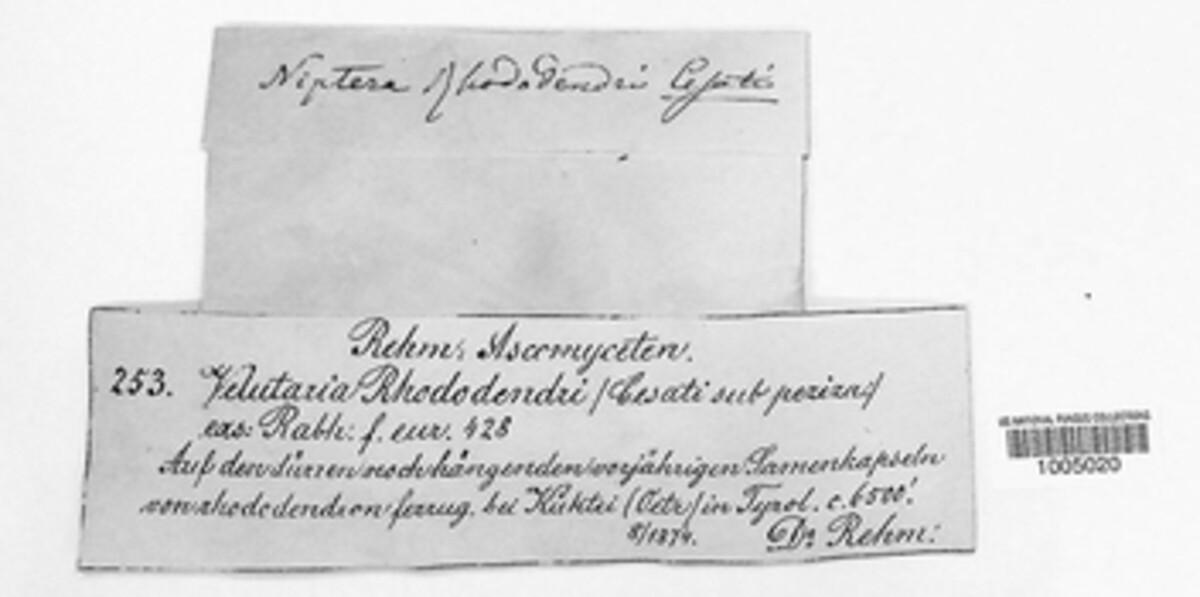 Niptera Rhododendri Cesati
Rehm: Ascomyceten.
253. Velutaria Rhododendri (Cesati sub peziza)
exs: Rabh: f. eur. 428
Auf den dürren noch hängenden vorjährigen Samenkapseln
von rhododendron ferrug. bei (Oetz) in Tyrol. c. 6500'.
8/1874. Dr Rehm:
US NATIONAL FUNGUS COLLECTIONS
1005020